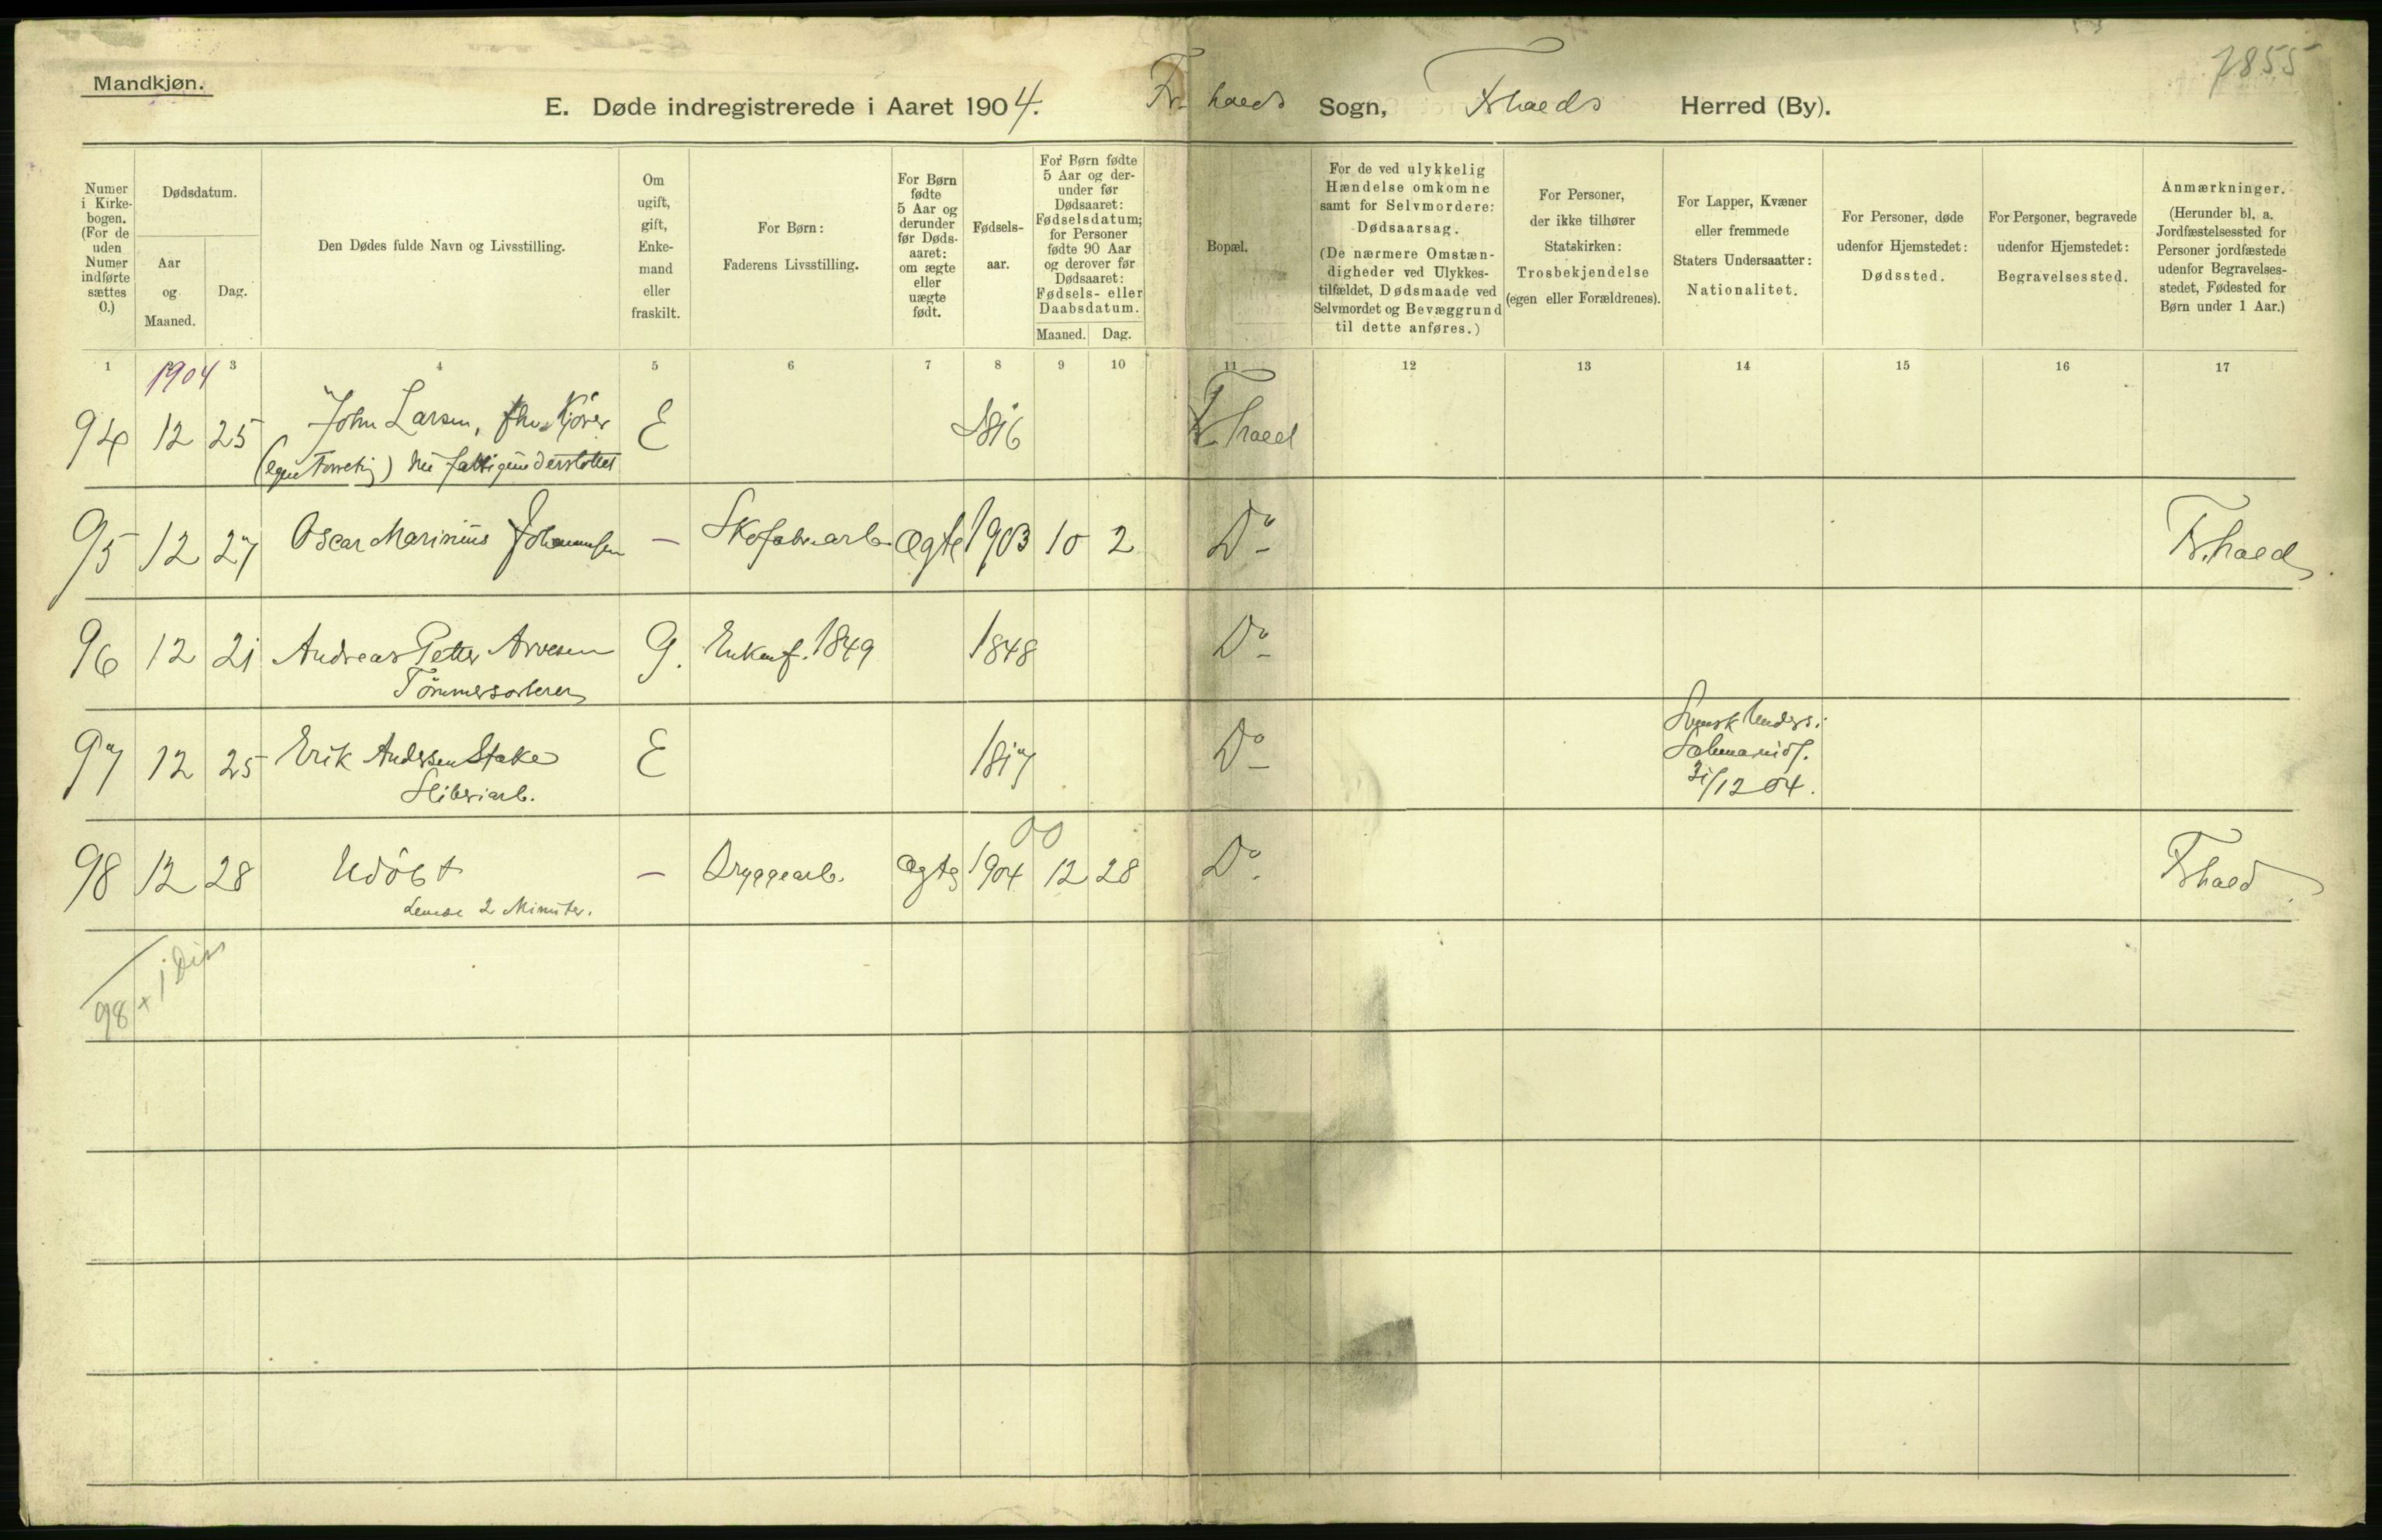 Mandkjøn.
7855
E. Døde indregistrerede i Aaret 1904. Fr.halds Sogn, Frhalds Herred (By).
Numer i Kirkebogen. (For de uden Numer indførte sættes 0.)
Dødsdatum.
Aar og Maaned.
Dag.
Den Dødes fulde Navn og Livsstilling.
Om ugift, gift, Enkemand eller fraskilt.
For Børn: Faderens Livsstilling.
For Børn fødte 5 Aar og derunder før Dødsaaret: om ægte eller uægte født.
Fødselsaar.
For Børn fødte 5 Aar og derunder før Dødsaaret: Fødselsdatum; for Personer fødte 90 Aar og derover før Dødsaaret: Fødsels- eller Daabsdatum.
Maaned. Dag.
Bopæl.
For de ved ulykkelig Hændelse omkomne samt for Selvmordere: Dødsaarsag. (De nærmere Omstændigheder ved Ulykkestilfældet, Dødsmaade ved Selvmordet og Bevæggrund til dette anføres.)
For Personer, der ikke tilhører Statskirken: Trosbekjendelse (egen eller Forældrenes).
For Lapper, Kvæner eller fremmede Staters Undersaatter: Nationalitet.
For Personer, døde udenfor Hjemstedet: Dødssted.
For Personer, begravede udenfor Hjemstedet: Begravelsessted.
Anmærkninger. (Herunder bl. a. Jordfæstelsessted for Personer jordfæstede udenfor Begravelsesstedet, Fødested for Børn under 1 Aar.)
1 3 4 5 6 7 8 9 10 11 12 13 14 15 16 17
1904
94 12 25 John Larsen, fhv. Kjører E 1816 Fr.hald
(egen Forretng) nu fattigunderstøttet
95 12 27 Oscar Marinius Johannsen — Skofabrarb. Ægte 1903 10 2 Do Fr.hald
96 12 21 Andreas Petter Arvesen G. Enke f. 1849 1848 Do
Tømmersorterer
97 12 25 Erik Andersen Stake E 1817 Do Svensk Unders.
Sliberiarb.
31/12 04.
98 12 28 Udøbt — Bryggearb. Ægte 1904 00 12 28 Do Frhald
Levede 2 Minuter.
98 + 1 Diss